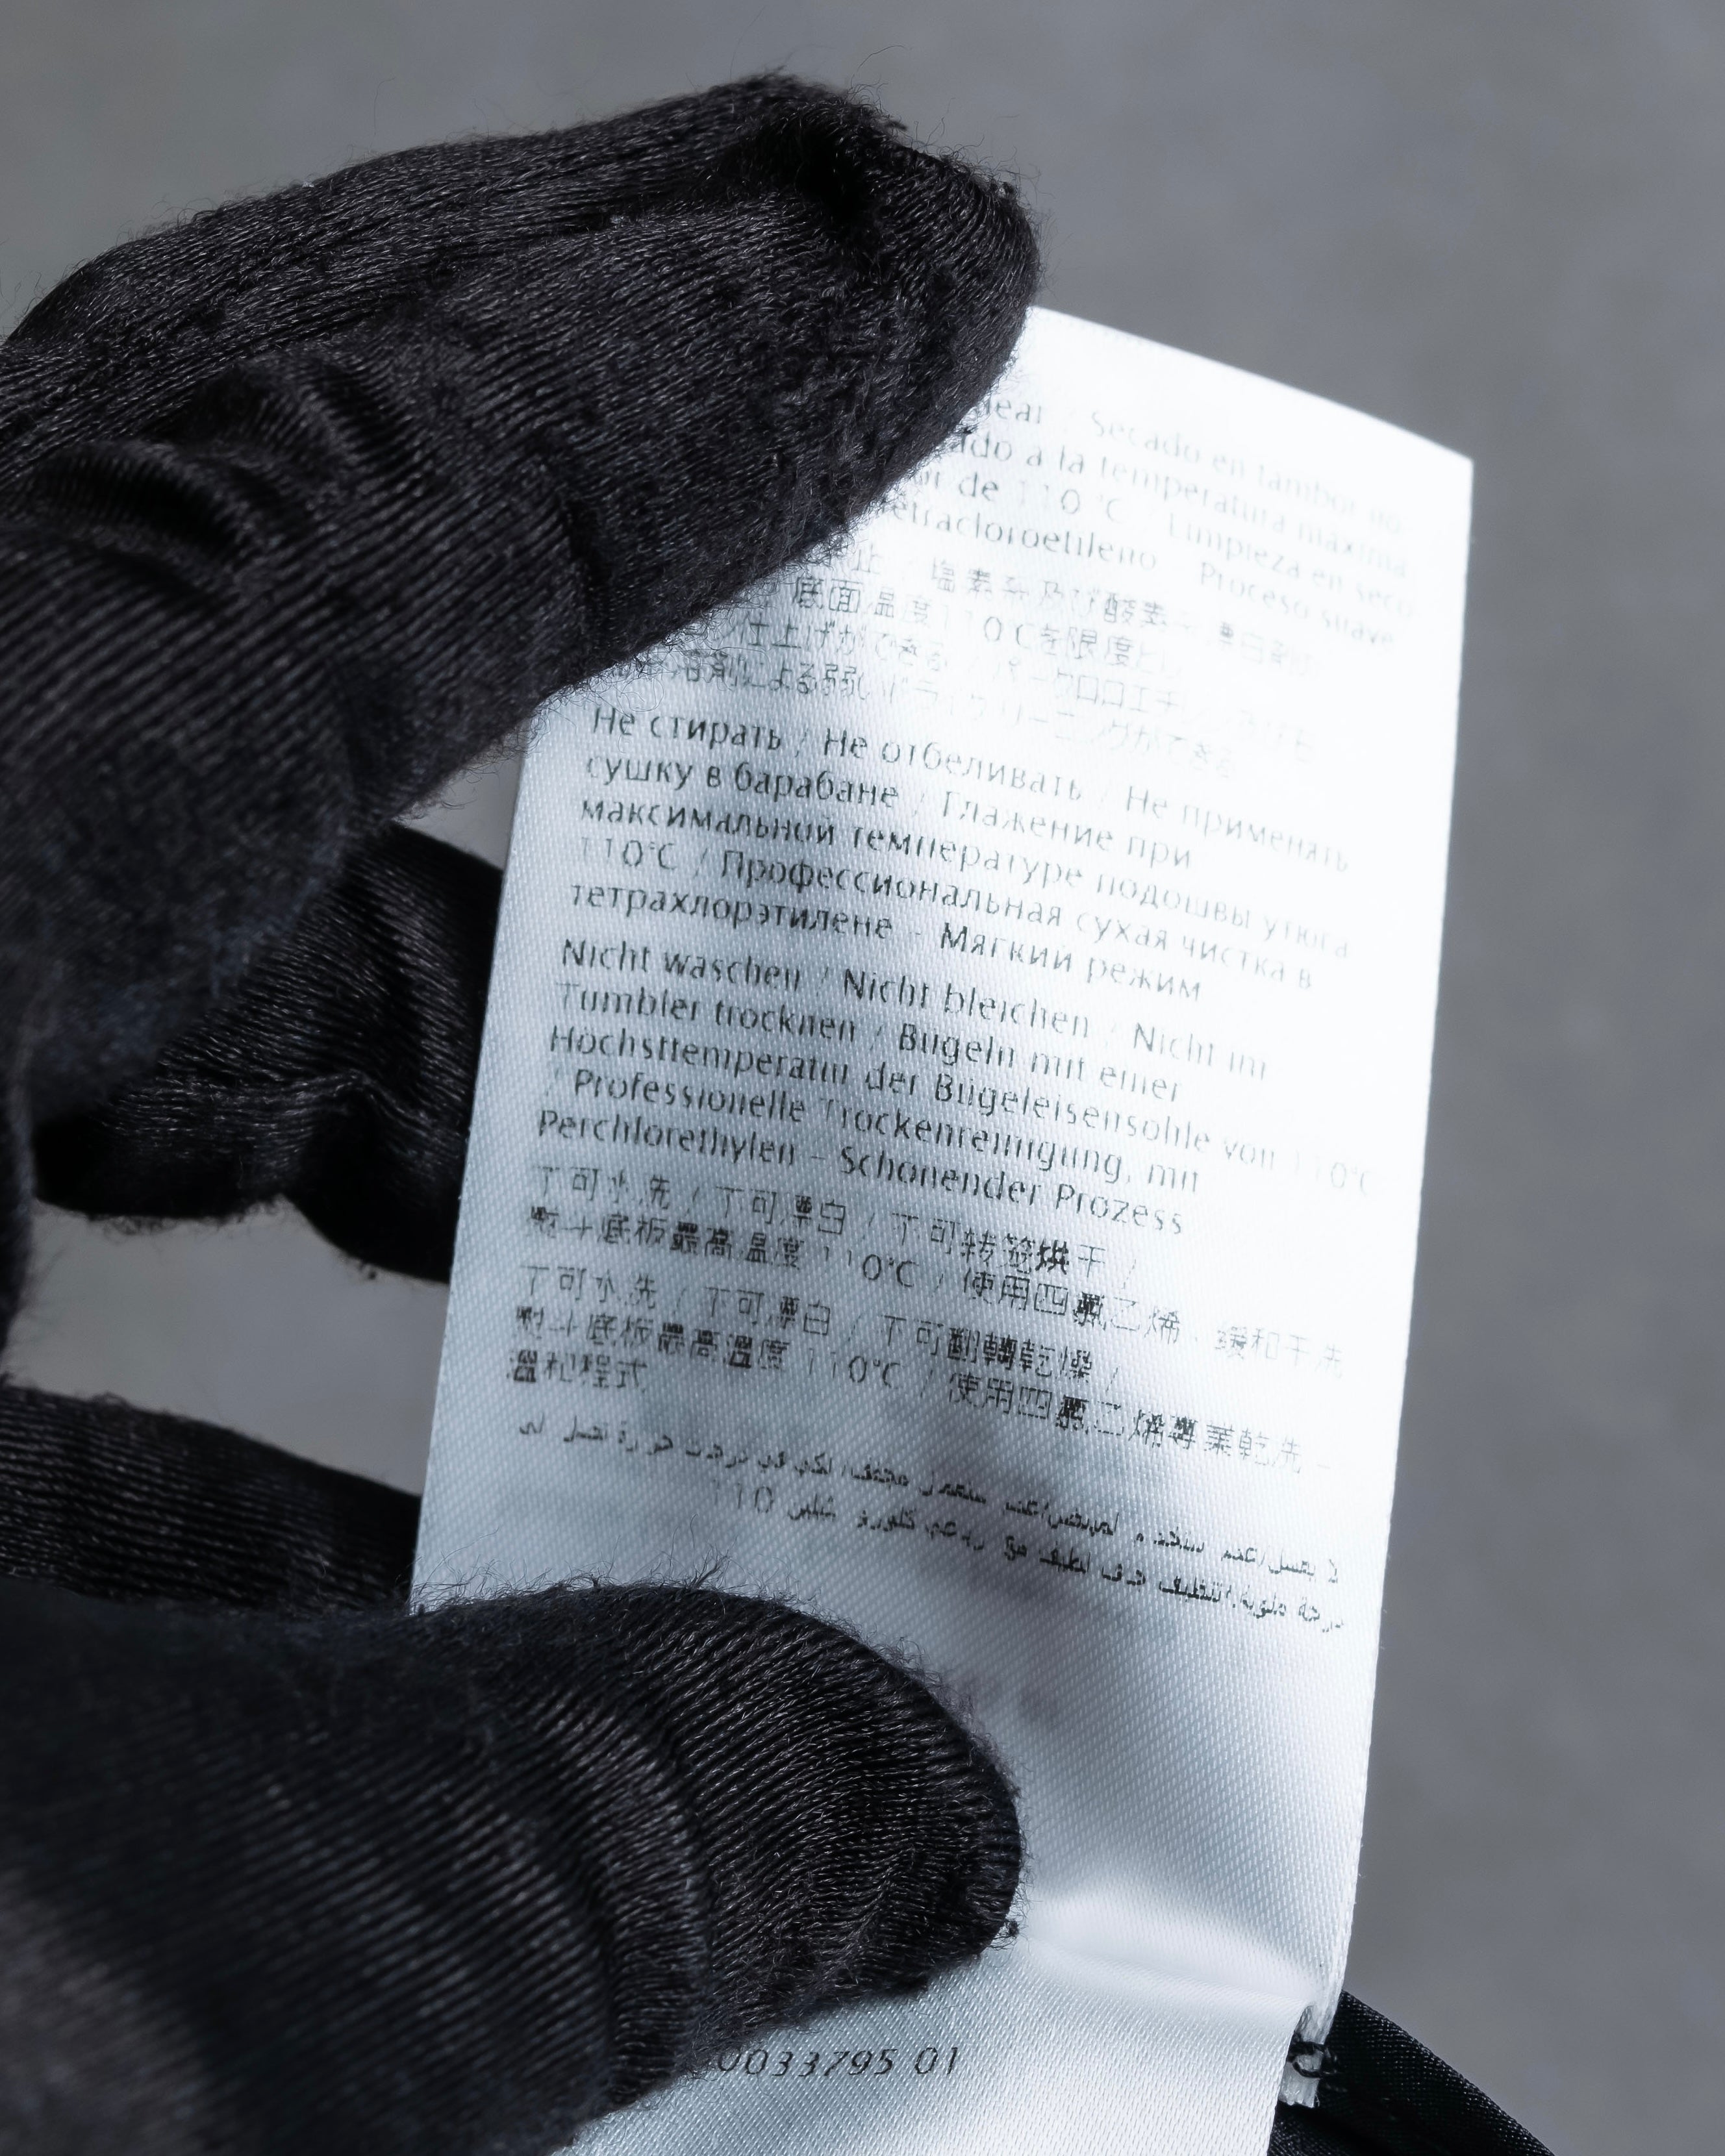 Secado en tambor no
a la temperatura máxima
de 110 °C / Limpieza en seco
tetracloroetileno - Proceso suave
止 / 塩素系及び酸素系漂白剤
底面温度110℃を限度とし
仕上げができる / パークロロエチレン及び石
溶剤による弱いドライクリーニングができる
Не стирать / Не отбеливать / Не применять
сушку в барабане / Глажение при
максимальной температуре подошвы утюга
110°C / Профессиональная сухая чистка в
тетрахлорэтилене - Мягкий режим
Nicht waschen / Nicht bleichen / Nicht im
Tumbler trocknen / Bügeln mit einer
Höchsttemperatur der Bügeleisensohle von 110°C
/ Professionelle Trockenreinigung, mit
Perchlorethylen – Schonender Prozess
不可水洗 / 不可漂白 / 不可转笼烘干 /
熨斗底板最高温度 110°C / 使用四氯乙烯，缓和干洗
不可水洗 / 不可漂白 / 不可翻轉乾燥 /
熨斗底板最高溫度 110°C / 使用四氯乙烯專業乾洗 -
溫和程式
لا يغسل
درجة مئوية 110
0033795 01